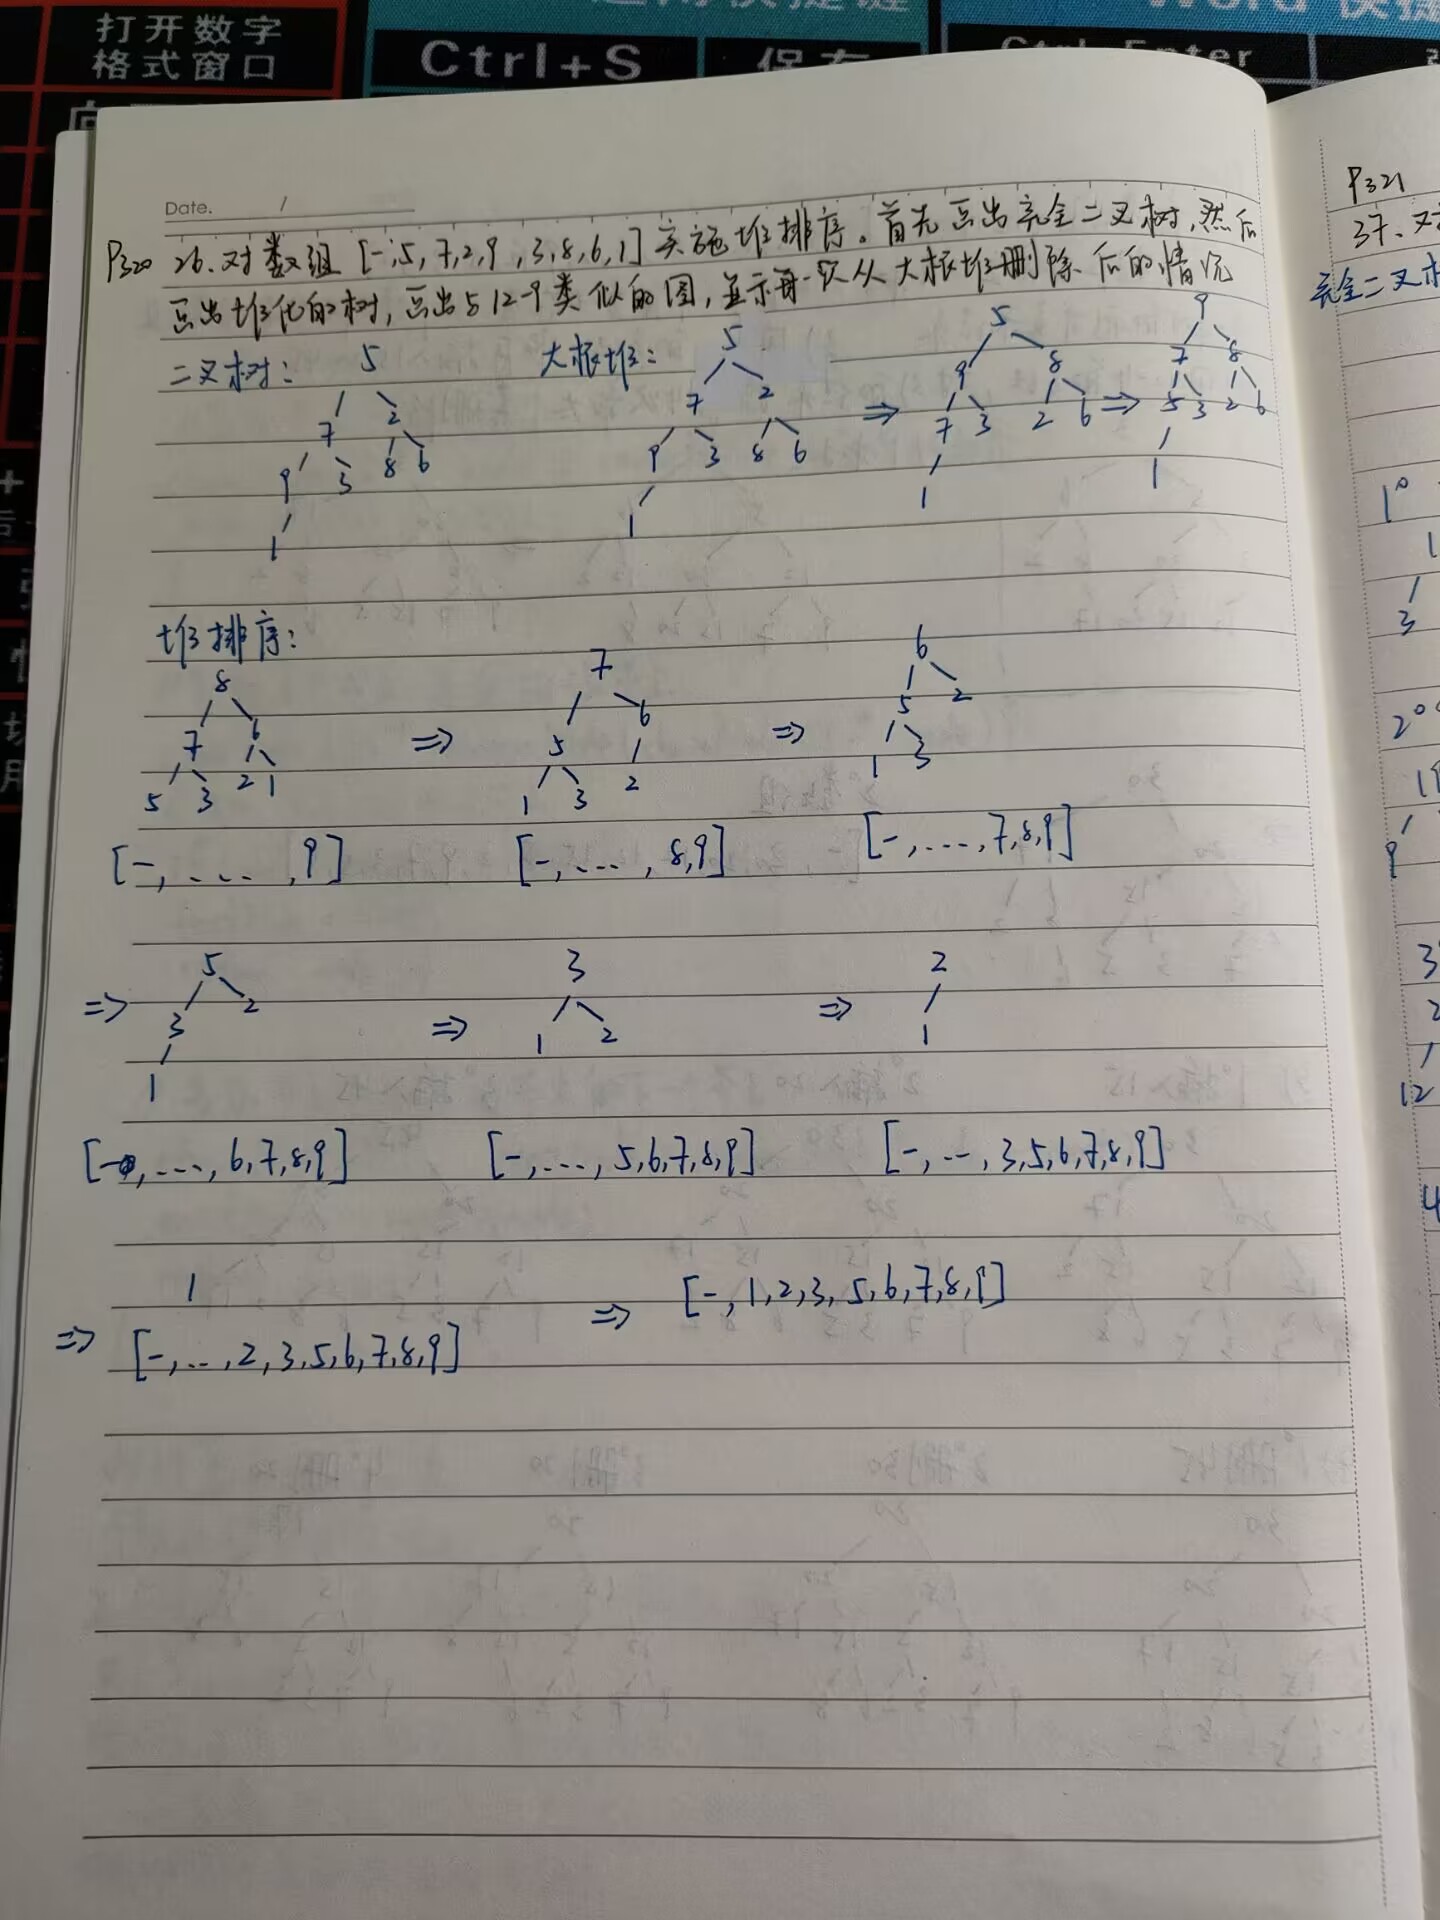 打开数字
格式窗口
Ctrl+S
保存
Ctrl+Enter
Date. /
P320 26、对数组[-,5,7,2,9,3,8,6,1]实施堆排序。首先画出完全二叉树,然后
画出堆化的树,画出与12-9类似的图,显示每一次从大根堆删除后的情况
二叉树:
5
7 2
9 3 8 6
1
大根堆:
5
7 2
9 3 8 6
1
⇒
5
9 8
7 3 2 6
1
⇒
9
7 8
5 3 2 6
1
堆排序:
8
7 6
5 3 2 1
[-, ...., 9]
⇒
7
5 6
1 3 2
[-, ...., 8,9]
⇒
6
5 2
1 3
[-, ...., 7,8,9]
⇒
5
3 2
1
[-, ...., 6,7,8,9]
⇒
3
1 2
[-, ...., 5,6,7,8,9]
⇒
2
1
[-, ..., 3,5,6,7,8,9]
⇒
1
[-, ..., 2,3,5,6,7,8,9]
⇒ [-,1,2,3,5,6,7,8,9]
P321
37、对
完全二叉
1°
1
3
2°
9
3
2
12
4